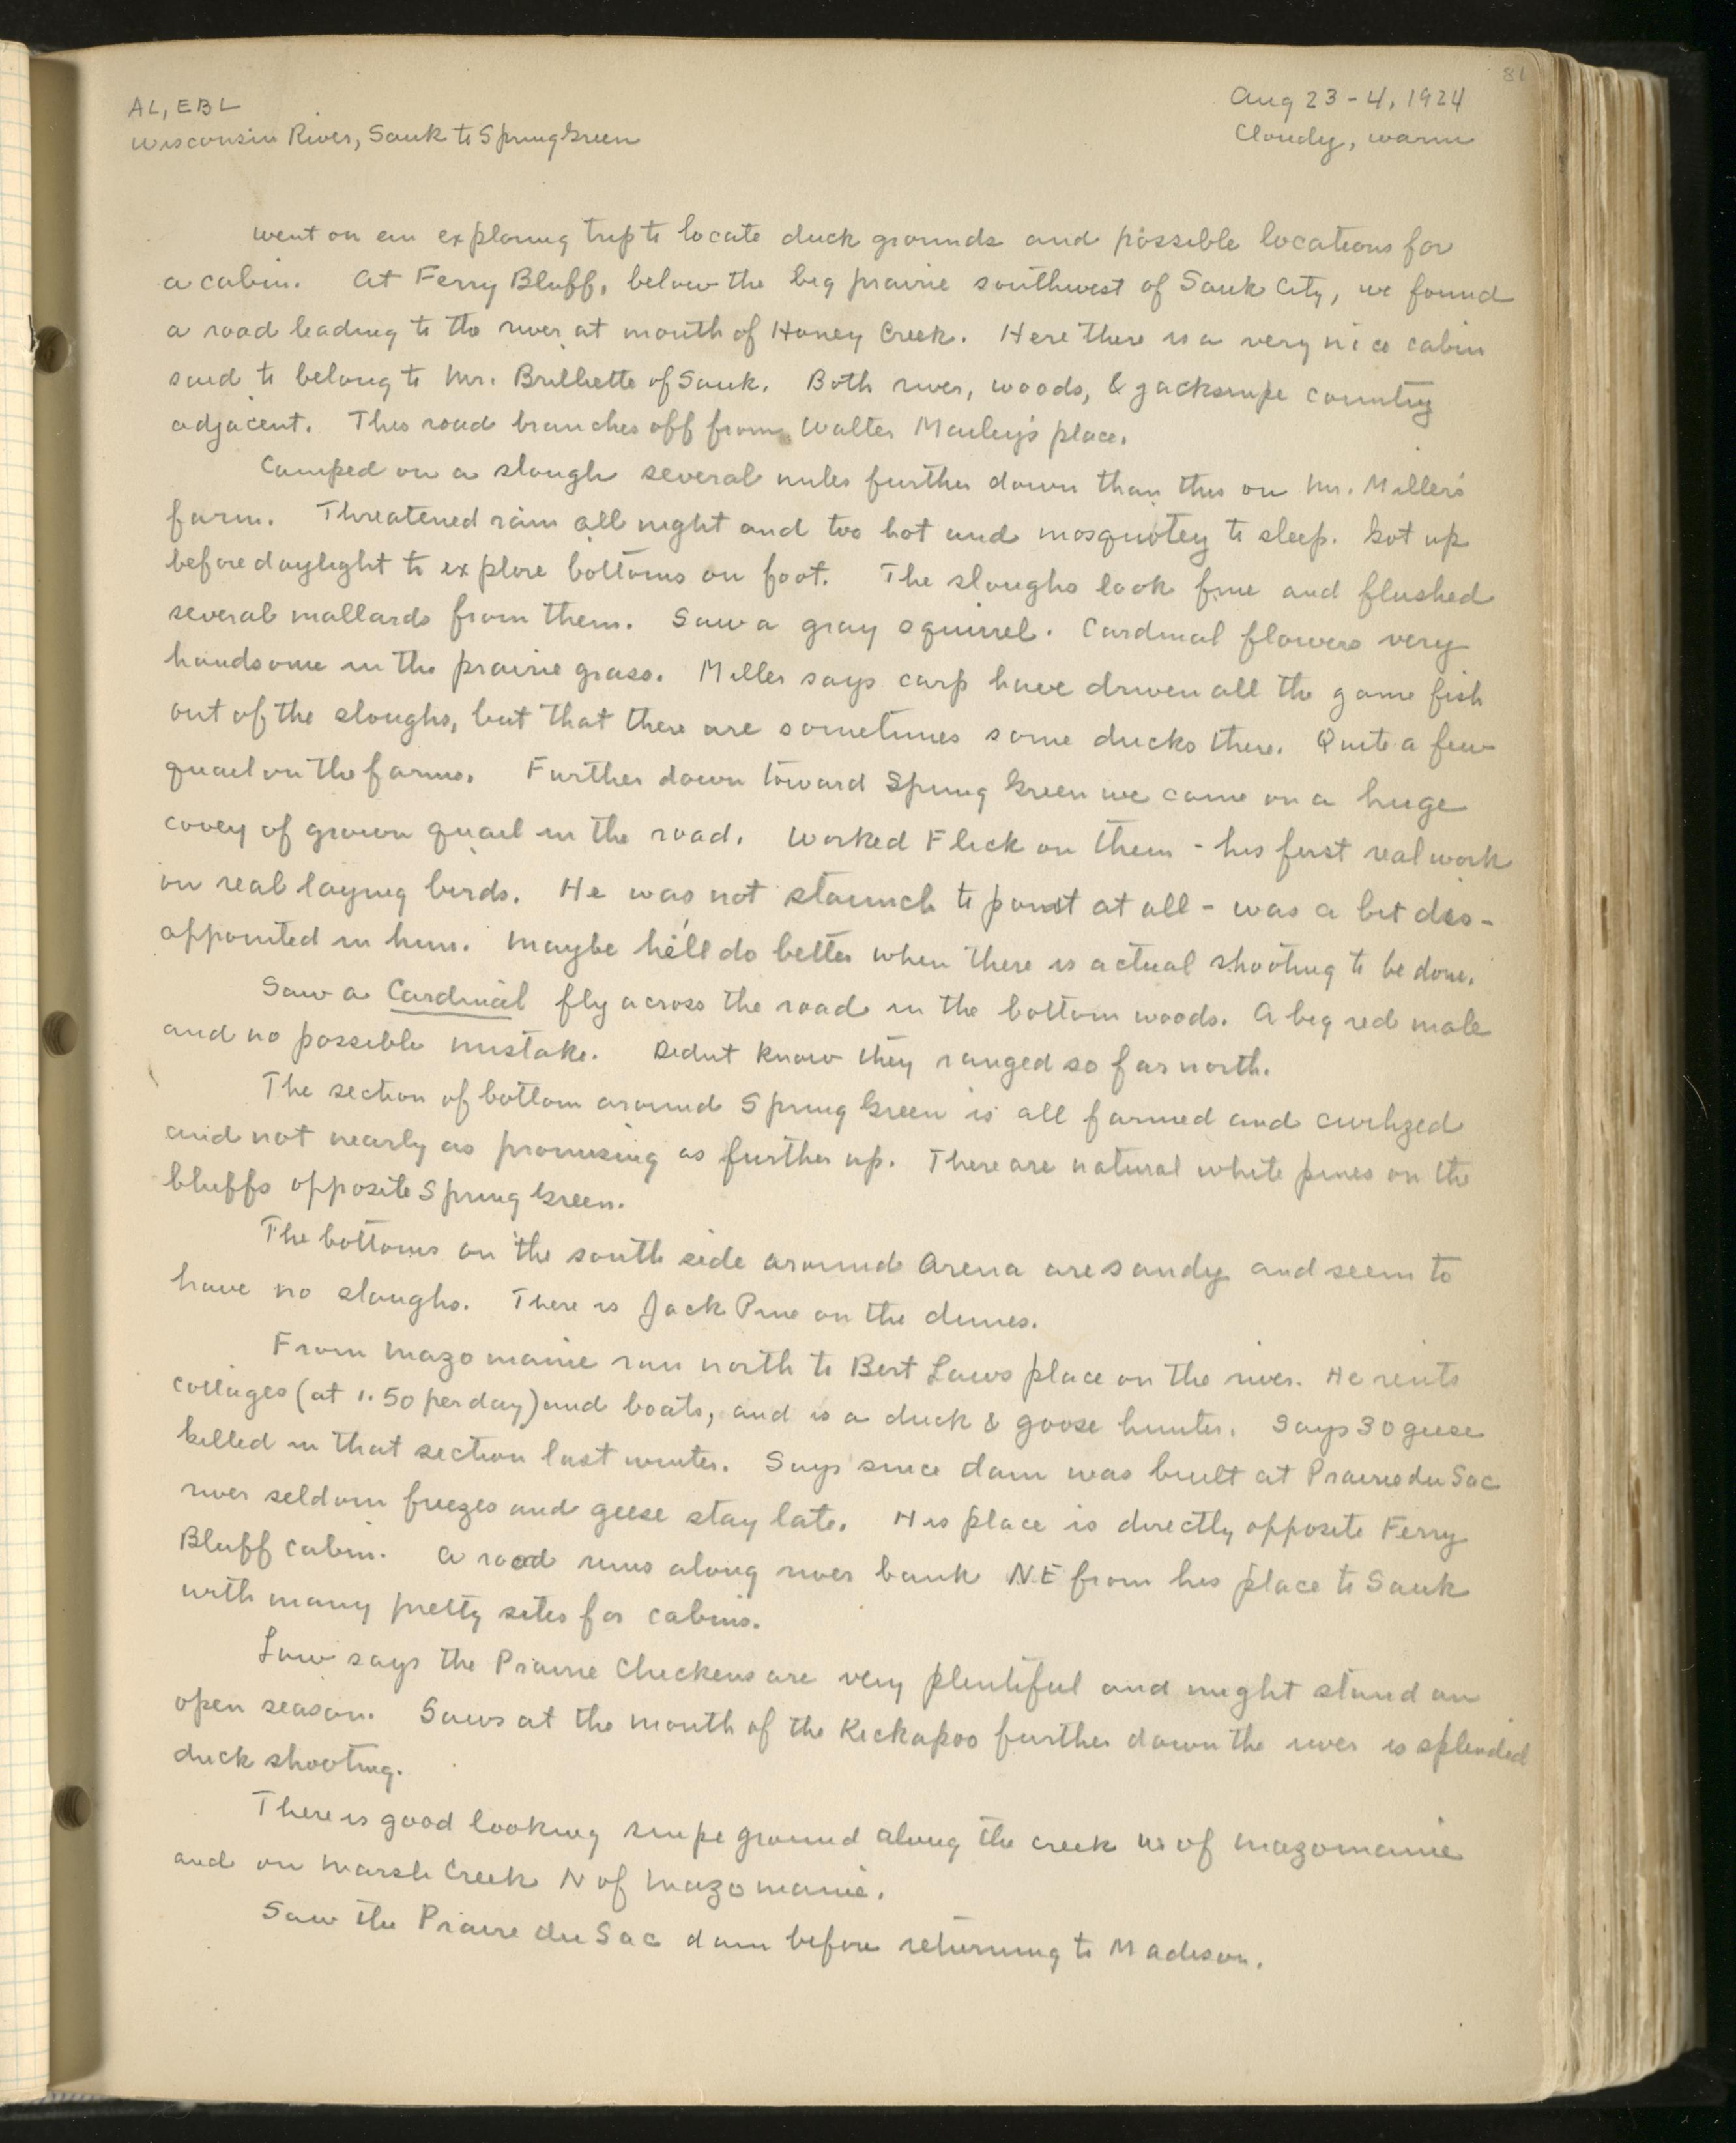 81
AL, EBL
Aug 23-4, 1924
Wisconsin River, Sauk to Spring Green
Cloudy, warm
Went on an exploring trip to locate duck grounds and possible locations for
a cabin. At Ferry Bluff, below the big prairie southwest of Sauk City, we found
a road leading to the river at mouth of Honey Creek. Here there is a very nice cabin
said to belong to Mr. of Sauk. Both river, woods, & jacksnipe country
adjacent. This road branches off from Walter place.
Camped on a slough several miles further down than this on Mr. Miller's
farm. Threatened rain all night and too hot and mosquitey to sleep. Got up
before daylight to explore bottoms on foot. The sloughs look fine and flushed
several mallards from them. Saw a gray squirrel. Cardinal flowers very
handsome in the prairie grass. Miller says carp have driven all the game fish
out of the sloughs, but that there are sometimes some ducks there. Quite a few
quail on the farms. Further down toward Spring Green we came on a huge
covey of grown quail in the road. Worked Flick on them - his first real work
on real laying birds. He was not staunch to point at all - was a bit dis-
appointed in him. Maybe he'll do better when there is actual shooting to be done.
Saw a Cardinal fly across the road in the bottom woods. A big red male
and no possible mistake. Didnt know they ranged so far north.
The section of bottom around Spring Green is all farmed and civilized
and not nearly as promising as further up. There are natural white pines on the
bluffs opposite Spring Green.
The bottoms on the south side around Arena are sandy and seem to
have no sloughs. There is Jack Pine on the dunes.
From Mazomanie run north to Bert Laws place on the river. He rents
cottages (at 1.50 per day) and boats, and is a duck & goose hunter. Says 30 geese
killed in that section last winter. Says since dam was built at Prairie du Sac
river seldom freezes and geese stay late. His place is directly opposite Ferry
Bluff cabin. A road runs along river bank N.E from his place to Sauk
with many pretty sites for cabins.
Law says the Prairie Chickens are very plentiful and might stand an
open season. Says at the mouth of the Kickapoo further down the river is splendid
duck shooting.
There is good looking snipe ground along the creek W of Mazomanie
and on Marsh Creek N of Mazomanie.
Saw the Prairie du Sac dam before returning to Madison.